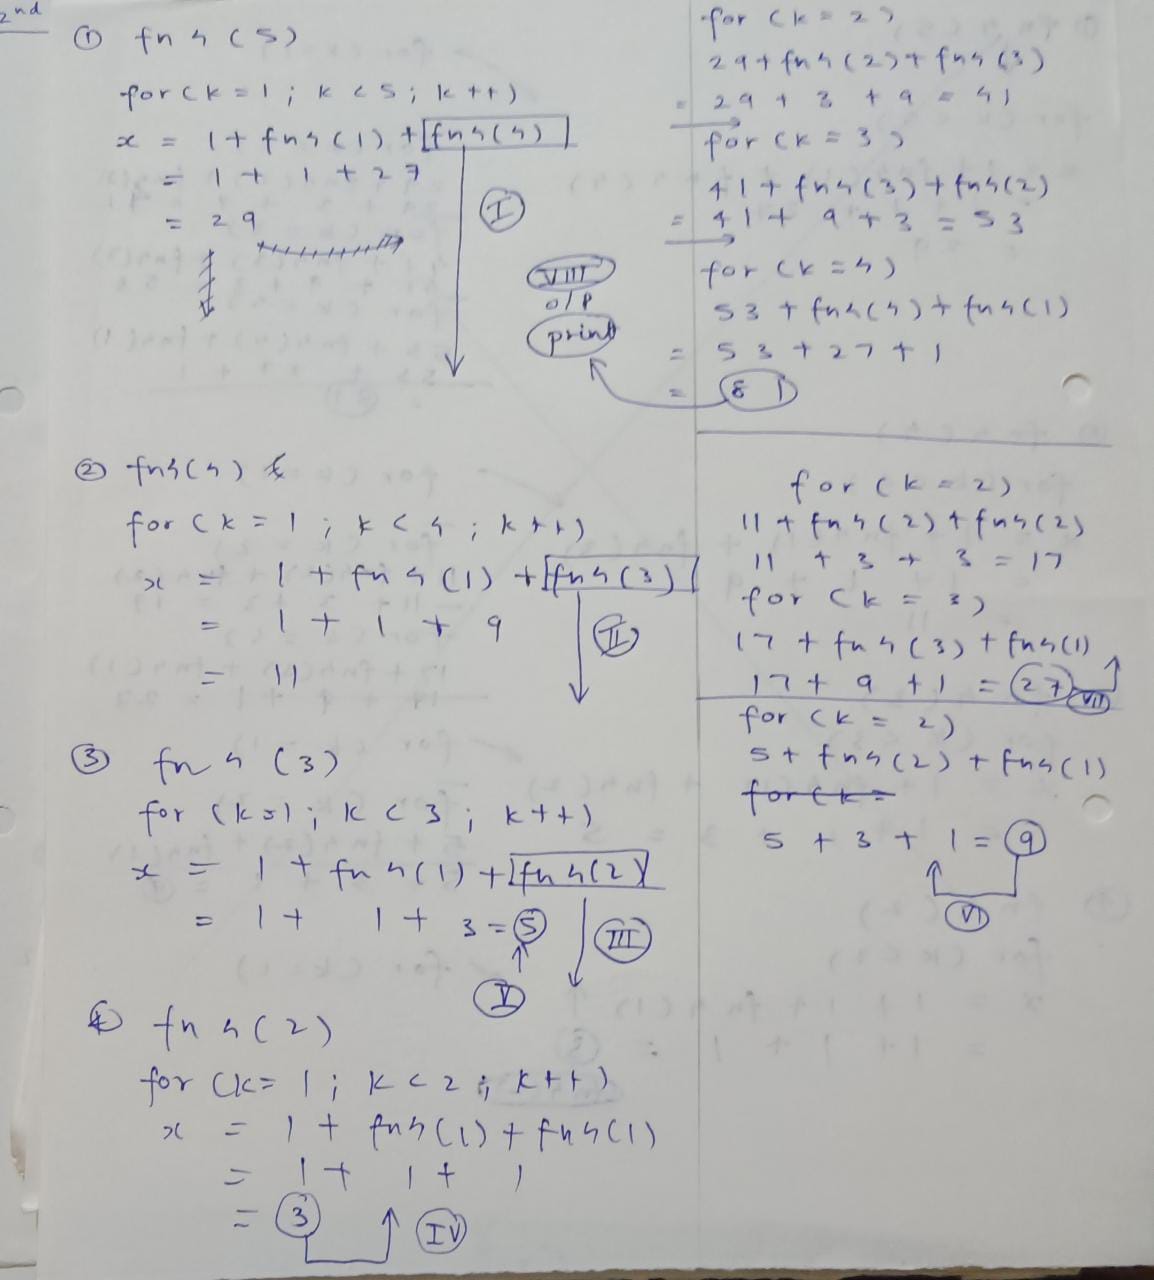 2nd
① fn4(5)
for(k=1; k<5; k++)
x = 1 + fn4(1) + fn4(4)
= 1 + 1 + 27
= 29
I
for (k=2)
29 + fn4(2) + fn4(3)
= 29 + 3 + 9 = 41
for (k=3)
41 + fn4(3) + fn4(2)
= 41 + 9 + 3 = 53
for (k=4)
53 + fn4(4) + fn4(1)
= 53 + 27 + 1
= 81
VIII
o/p
print
② fn4(4)
for (k=1; k<4; k++)
x = 1 + fn4(1) + fn4(3)
= 1 + 1 + 9
= 11
II
for (k=2)
11 + fn4(2) + fn4(2)
11 + 3 + 3 = 17
for (k=3)
17 + fn4(3) + fn4(1)
17 + 9 + 1 = 27
VII
③ fn4(3)
for (k=1; k<3; k++)
x = 1 + fn4(1) + fn4(2)
= 1 + 1 + 3 = 5
III
V
for (k=2)
5 + fn4(2) + fn4(1)
for(k=
5 + 3 + 1 = 9
VI
④ fn4(2)
for (k=1; k<2; k++)
x = 1 + fn4(1) + fn4(1)
= 1 + 1 + 1
= 3
IV